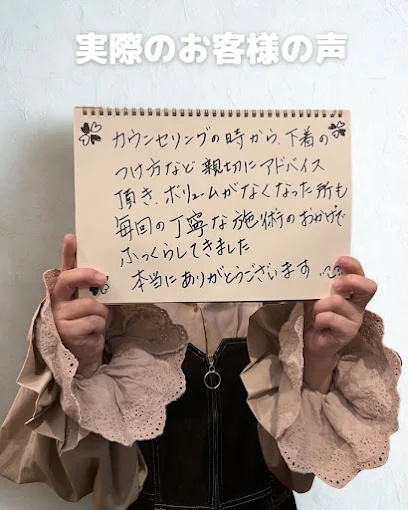 実際のお客様の声
カウンセリングの時から、下着の
つけ方など親切にアドバイス
頂き、ボリュームがなくなった所も
毎回の丁寧な施術のおかげで
ふっくらしてきました
本当にありがとうございます